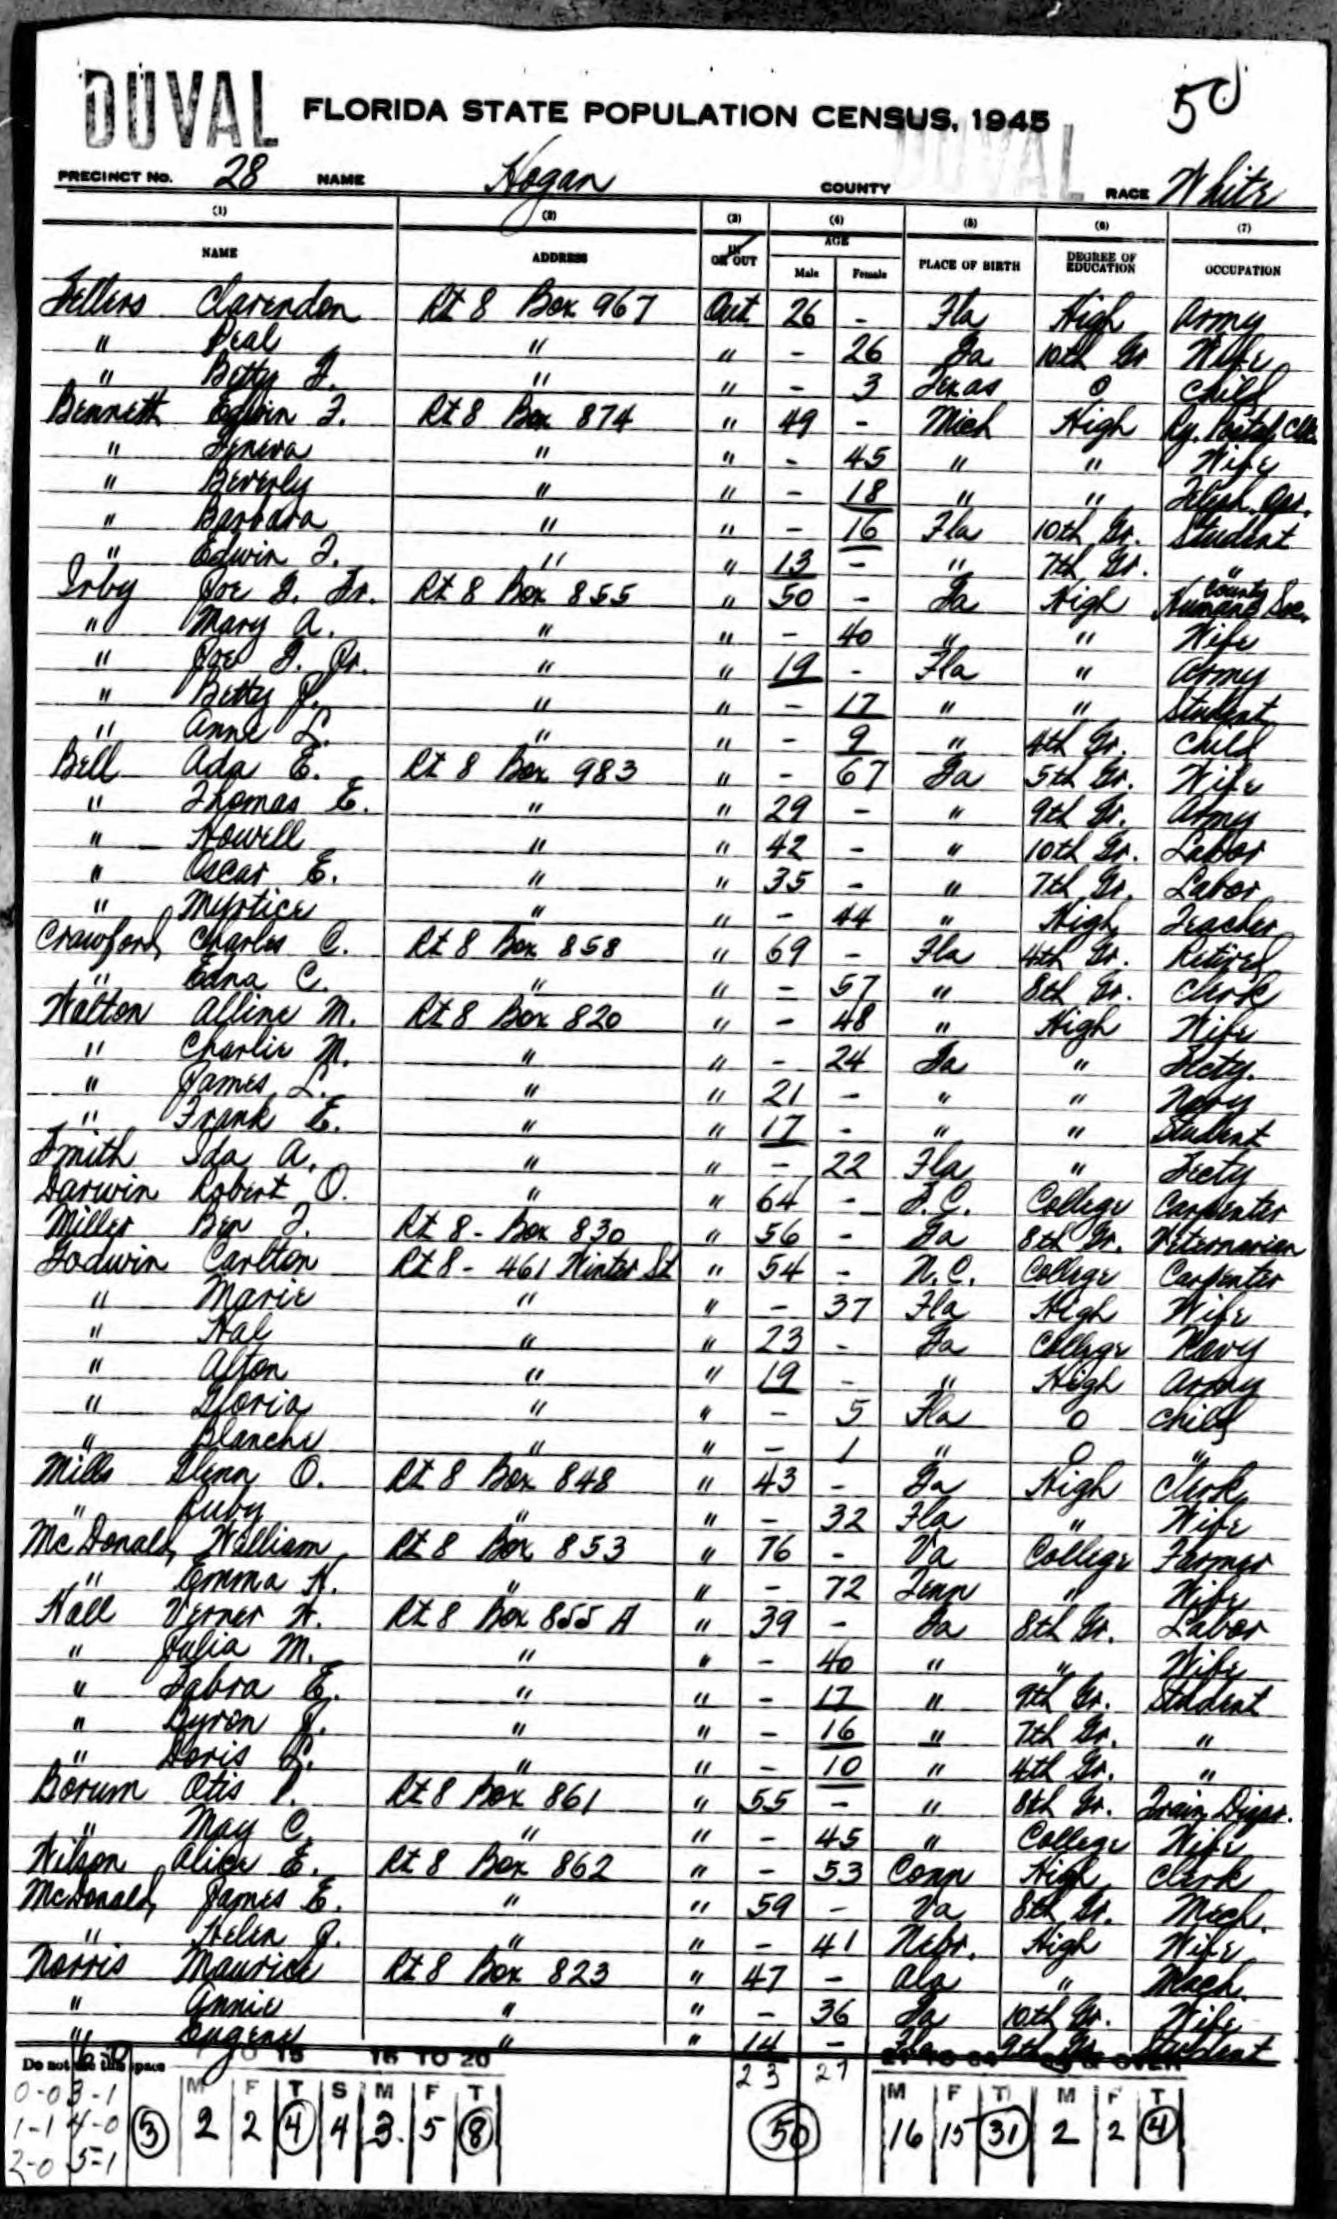 DUVAL
FLORIDA STATE POPULATION CENSUS, 1945
50
PRECINCT NO. 28 NAME Hogan COUNTY DUVAL RACE White
(1) (2) (3) (4) (5) (6) (7)
NAME ADDRESS IN OR OUT AGE Male Female PLACE OF BIRTH DEGREE OF EDUCATION OCCUPATION
Clarendon Rt 8 Box 967 Out 26 - Fla High Army
" " " - 26 Ga 10th Gr Wife
" Betty " " - 3 Texas 0 Child
Bennett Edwin F. Rt 8 Box 874 " 49 - Mich High Ry. Postal Clk.
" Geneva " " - 45 " " Wife
" Beverly " " - 18 " " Teleph. Opr.
" Barbara " " - 16 Fla 10th Gr. Student
" Edwin F. " " 13 - " 7th Gr. "
Irby Joe G. Sr. Rt 8 Box 855 " 50 - Ga High County Humane Soc.
" Mary A. " " - 40 " " Wife
" Joe G. Jr. " " 19 - Fla " Army
" Betty J. " " - 17 " " Student
" Anne L. " " - 9 " 4th Gr. Child
Bell Ada E. Rt 8 Box 983 " - 67 Ga 5th Gr. Wife
" Thomas E. " " 29 - " 9th Gr. Army
" Howell " " 42 - " 10th Gr. Labor
" Oscar E. " " 35 - " 7th Gr. Labor
" Myrtice " " - 44 " High Teacher
Crawford, Charles C. Rt 8 Box 858 " 69 - Fla 4th Gr. Retired
" Edna C. " " - 57 " 8th Gr. Clerk
Walton Alline M. Rt 8 Box 820 " - 48 " High Wife
" Charlie M. " " - 24 Ga " Secty.
" James L. " " 21 - " " Navy
" Frank E. " " 17 - " " Student
Smith Ida A. " " - 22 Fla " Secty
Darwin Robert O. " " 64 - S.C. College Carpenter
Miller Ben F. Rt 8 - Box 830 " 56 - Ga 8th Gr. Veternarian
Godwin Carlton Rt 8 - 461 Winter St " 54 - N.C. College Carpenter
" Marie " " - 37 Fla High Wife
" Hal " " 23 - Ga College Navy
" Alton " " 19 - " High Army
" Gloria " " - 5 Fla 0 Child
" Blanche " " - 1 " 0 "
Mills Glenn O. Rt 8 Box 848 " 43 - Ga High Clerk
" Ruby " " - 32 Fla " Wife
McDonald, William Rt 8 Box 853 " 76 - Va College Farmer
" Emma H. " " - 72 Tenn " Wife
Hall Verner W. Rt 8 Box 855 A " 39 - Ga 8th Gr. Labor
" Julia M. " " - 40 " " Wife
" Sabra E. " " - 17 " 9th Gr. Student
" Byron J. " " - 16 " 7th Gr. "
" Doris L. " " - 10 " 4th Gr. "
Borum Otis P. Rt 8 Box 861 " 55 - " 8th Gr. Train Dispr.
" May C. " " - 45 " College Wife
Wilson Alice E. Rt 8 Box 862 " - 53 Conn High Clerk
McDonald, James E. " " 59 - Va 8th Gr. Mech.
" Helen J. " " - 41 Nebr. High Wife
Norris Maurice Rt 8 Box 823 " 47 - Ala " Mach.
" Annie " " - 36 Ga 10th Gr. Wife
" Eugene " " 14 - Fla 9th Gr. Student
Do not use this space 15 16 TO 20 23 27 21 TO 64 65 & OVER
M F T S M F T M F T M F T
0-0 3-1
1-1 4-0 3 2 2 4 4 3 5 8 50 16 15 31 2 2 4
2-0 5-1